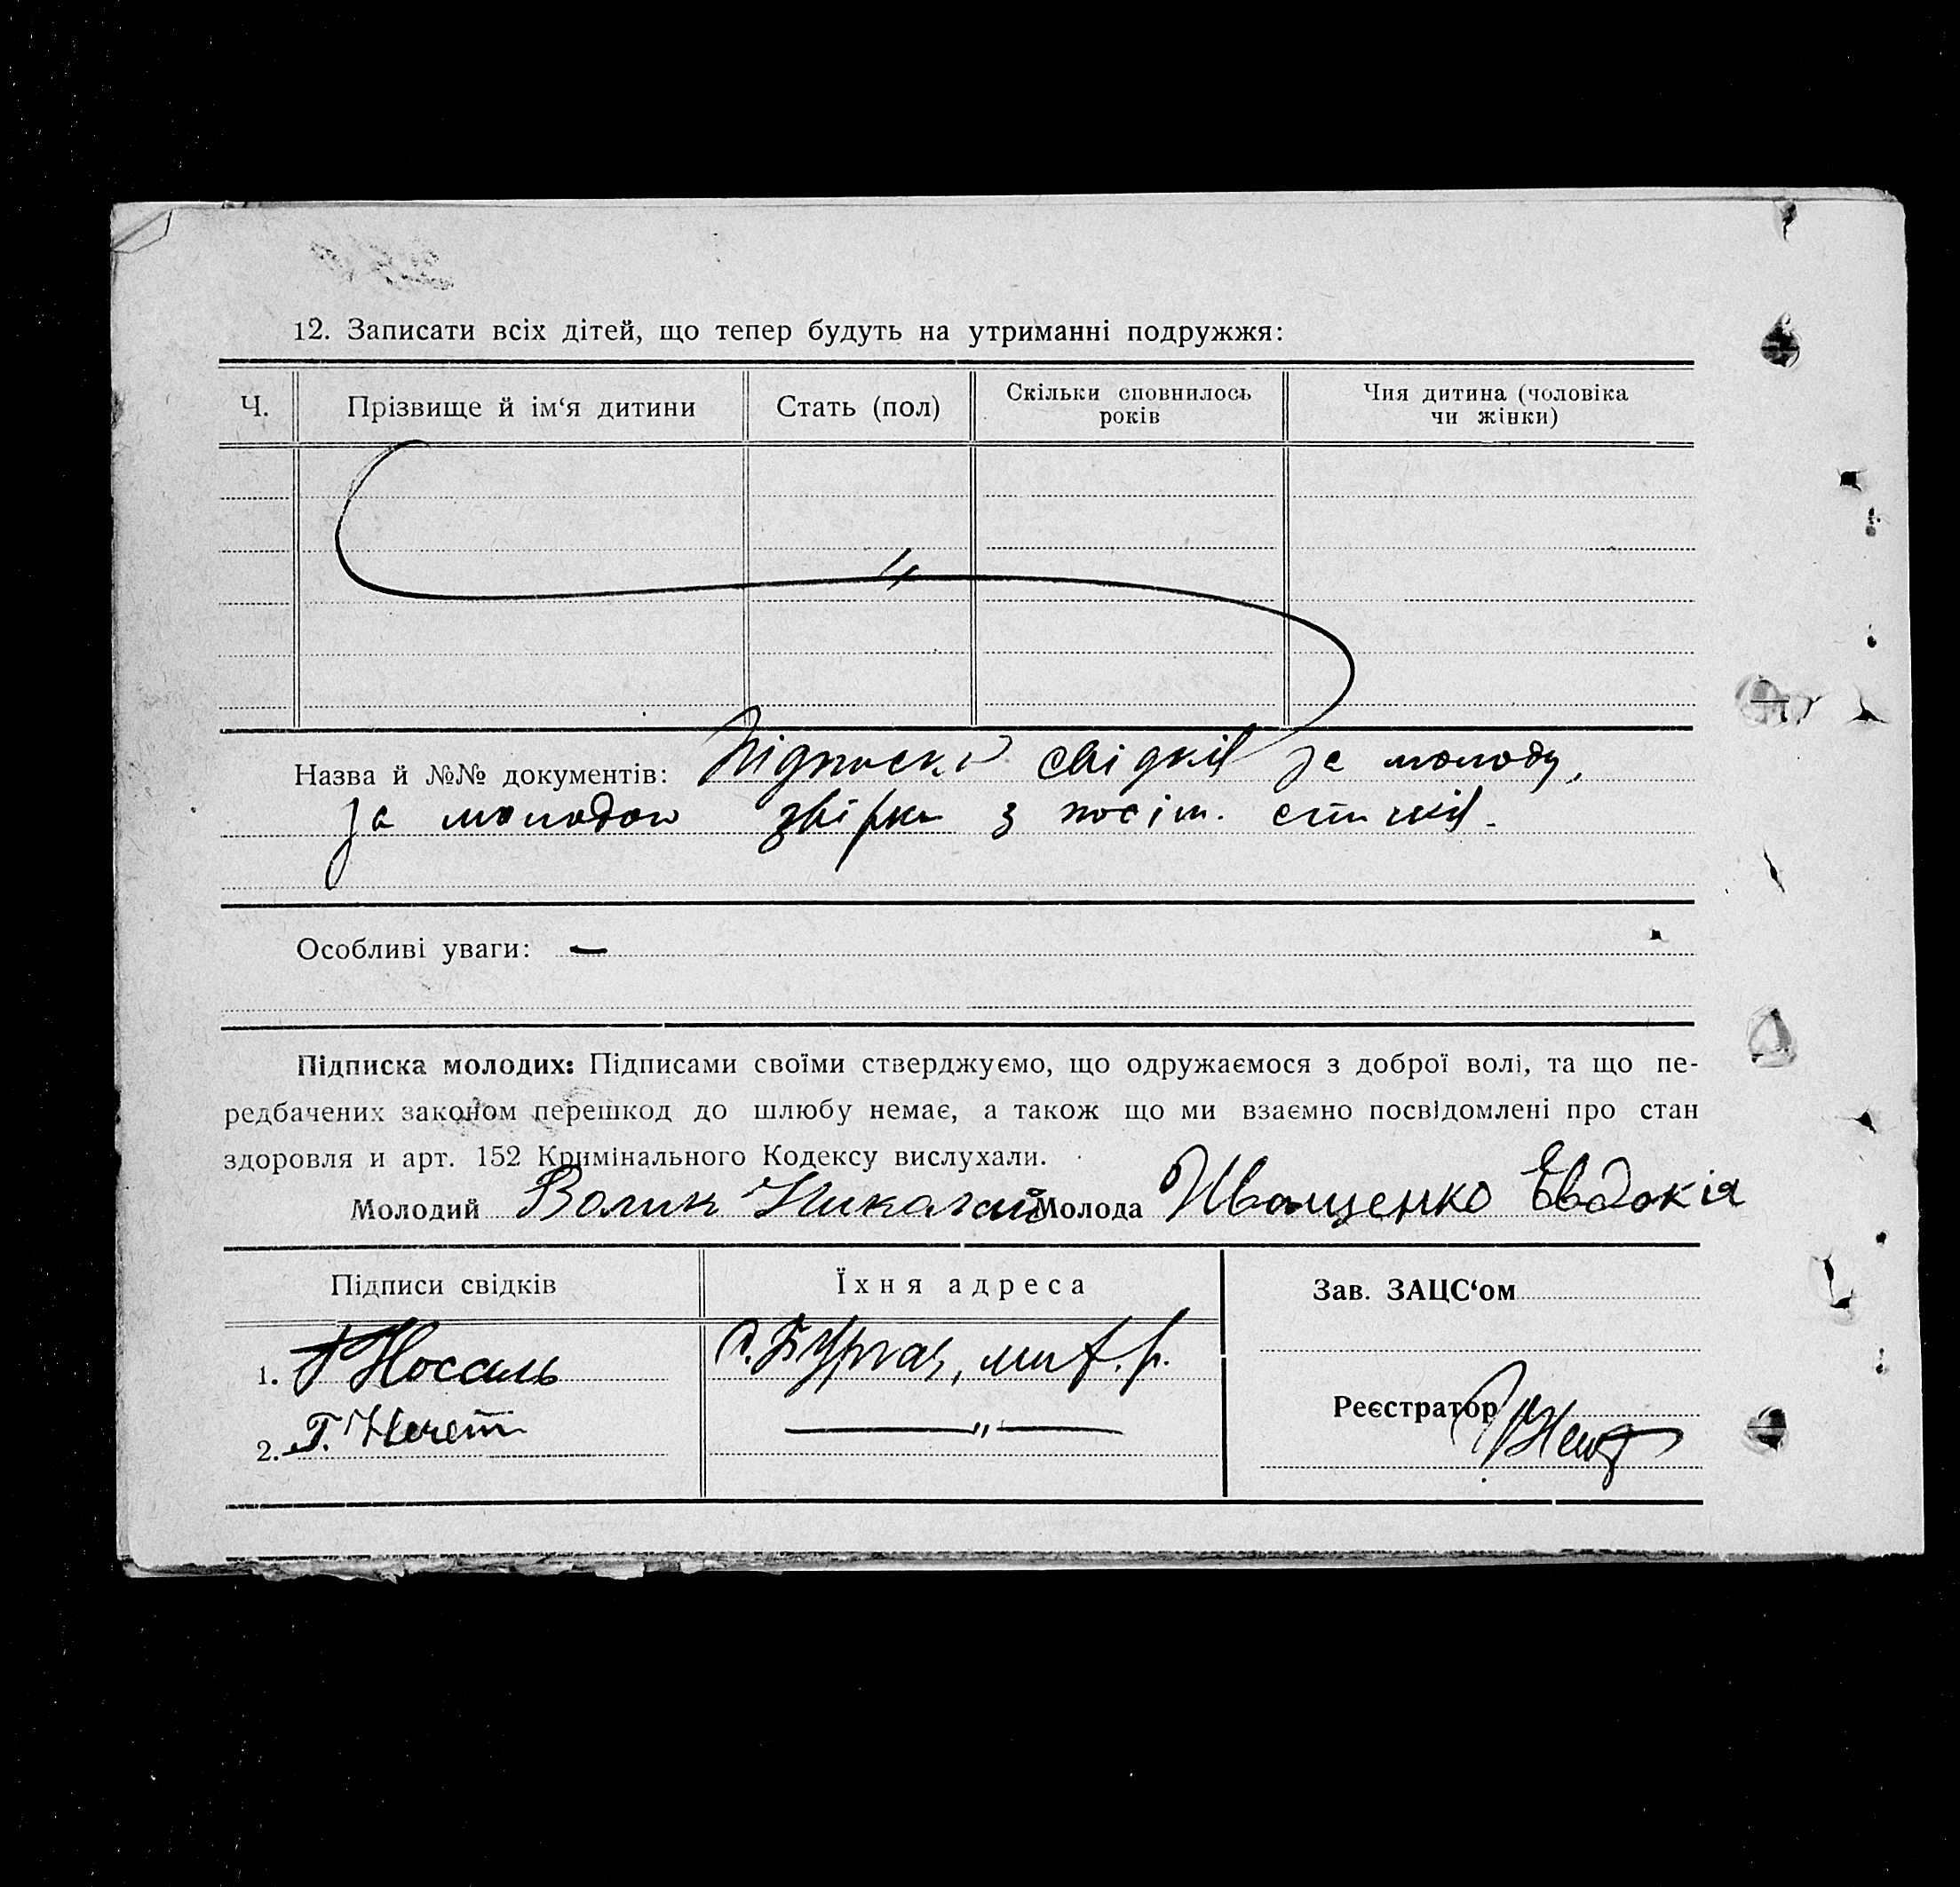 12. Записати всіх дітей, що тепер будуть на утриманні подружжя:
Ч. Прізвище й ім‘я дитини Стать (пол) Скільки сповнилось років Чия дитина (чоловіка чи жінки)
Назва й №№ документів: Підписки свідків за молоду,
за молодого звірки з посім. спискiв.
Особливі уваги: —
Підписка молодих: Підписами своїми стверджуємо, що одружаємося з доброї волі, та що пе-
редбачених законом перешкод до шлюбу немає, а також що ми взаємно посвідомлені про стан
здоровля и арт. 152 Кримінального Кодексу вислухали.
Молодий Волик Николай Молода Иванщенко Евдокія
Підписи свідків Їхня адреса Зав. ЗАЦС‘ом
1. Носаль
Реєстратор
2. Г. — " —